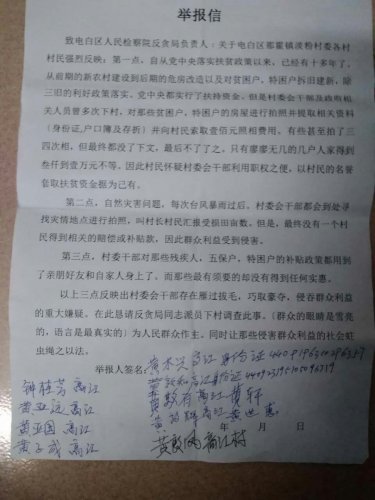 举报信
致电白区人民检察院反贪局负责人:关于电白区那霍镇淡粉村委各村
村民强烈反映:第一点,自从党中央落实扶贫政策以来,已经有十多年了,
从前期的新农村建设到后期的危房改造以及对贫困户,特困户拆旧建新,除
三旧的利好政策落实。党中央都实行了扶持资金。但是村委会干部及政府相
关人员曾多次下村,对那些贫困户,特困户的房屋进行拍照并提取相关资料
(身份证,户口簿及存折)并向村民索取壹佰元照相费用。有些甚至拍了三
四次相,但最终都没了下文,最后不了了之。只有廖廖无几的几户人家得到
叁仟到壹万元不等。因此村民怀疑村委会干部利用职权之便,以村民的名誉
套取扶贫资金据为己有。
第二点,自然灾害问题,每次台风暴雨过后,村委会干部都会到处寻
找灾情地点进行拍照,叫村长村民汇报受损田亩数。但是,最终没有一个村
民得到相关的赔偿或补贴款,因此群众利益受到侵害。
第三点,村委干部对那些残疾人,五保户,特困户的补贴政策都用到
了亲朋好友和自家人身上了。而那些最有须要的却没有得到任何实惠。
以上三点反映出村委会干部存在雁过拔毛,巧取豪夺,侵吞群众利益
的重大嫌疑。在此恳请反贪局同志派员下村调查此事。(群众的眼睛是雪亮
的,语言是最真实的)为人民群众作主。同时让那些侵害群众利益的社会蛀
虫绳之以法。
举报人签名:
钟桂芳 高江
黄亚远 高江
黄亚国 高江
黄子成 高江
年 月 日
高江村